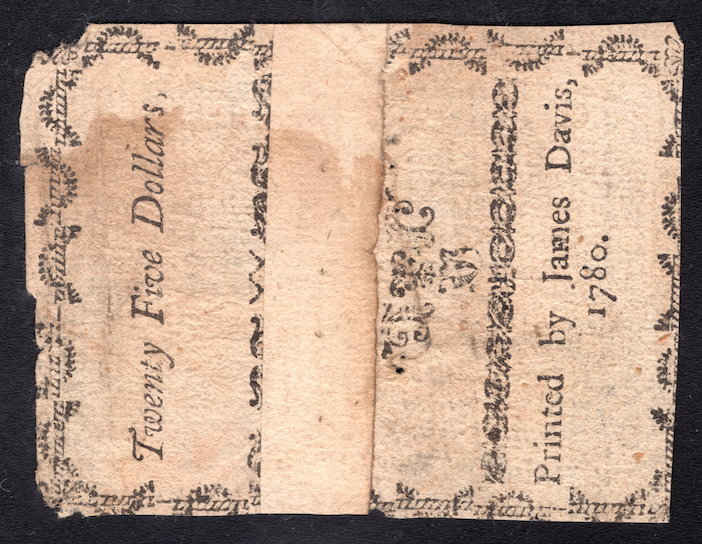 Twenty Five Dollars,
Printed by James Davis,
1780.